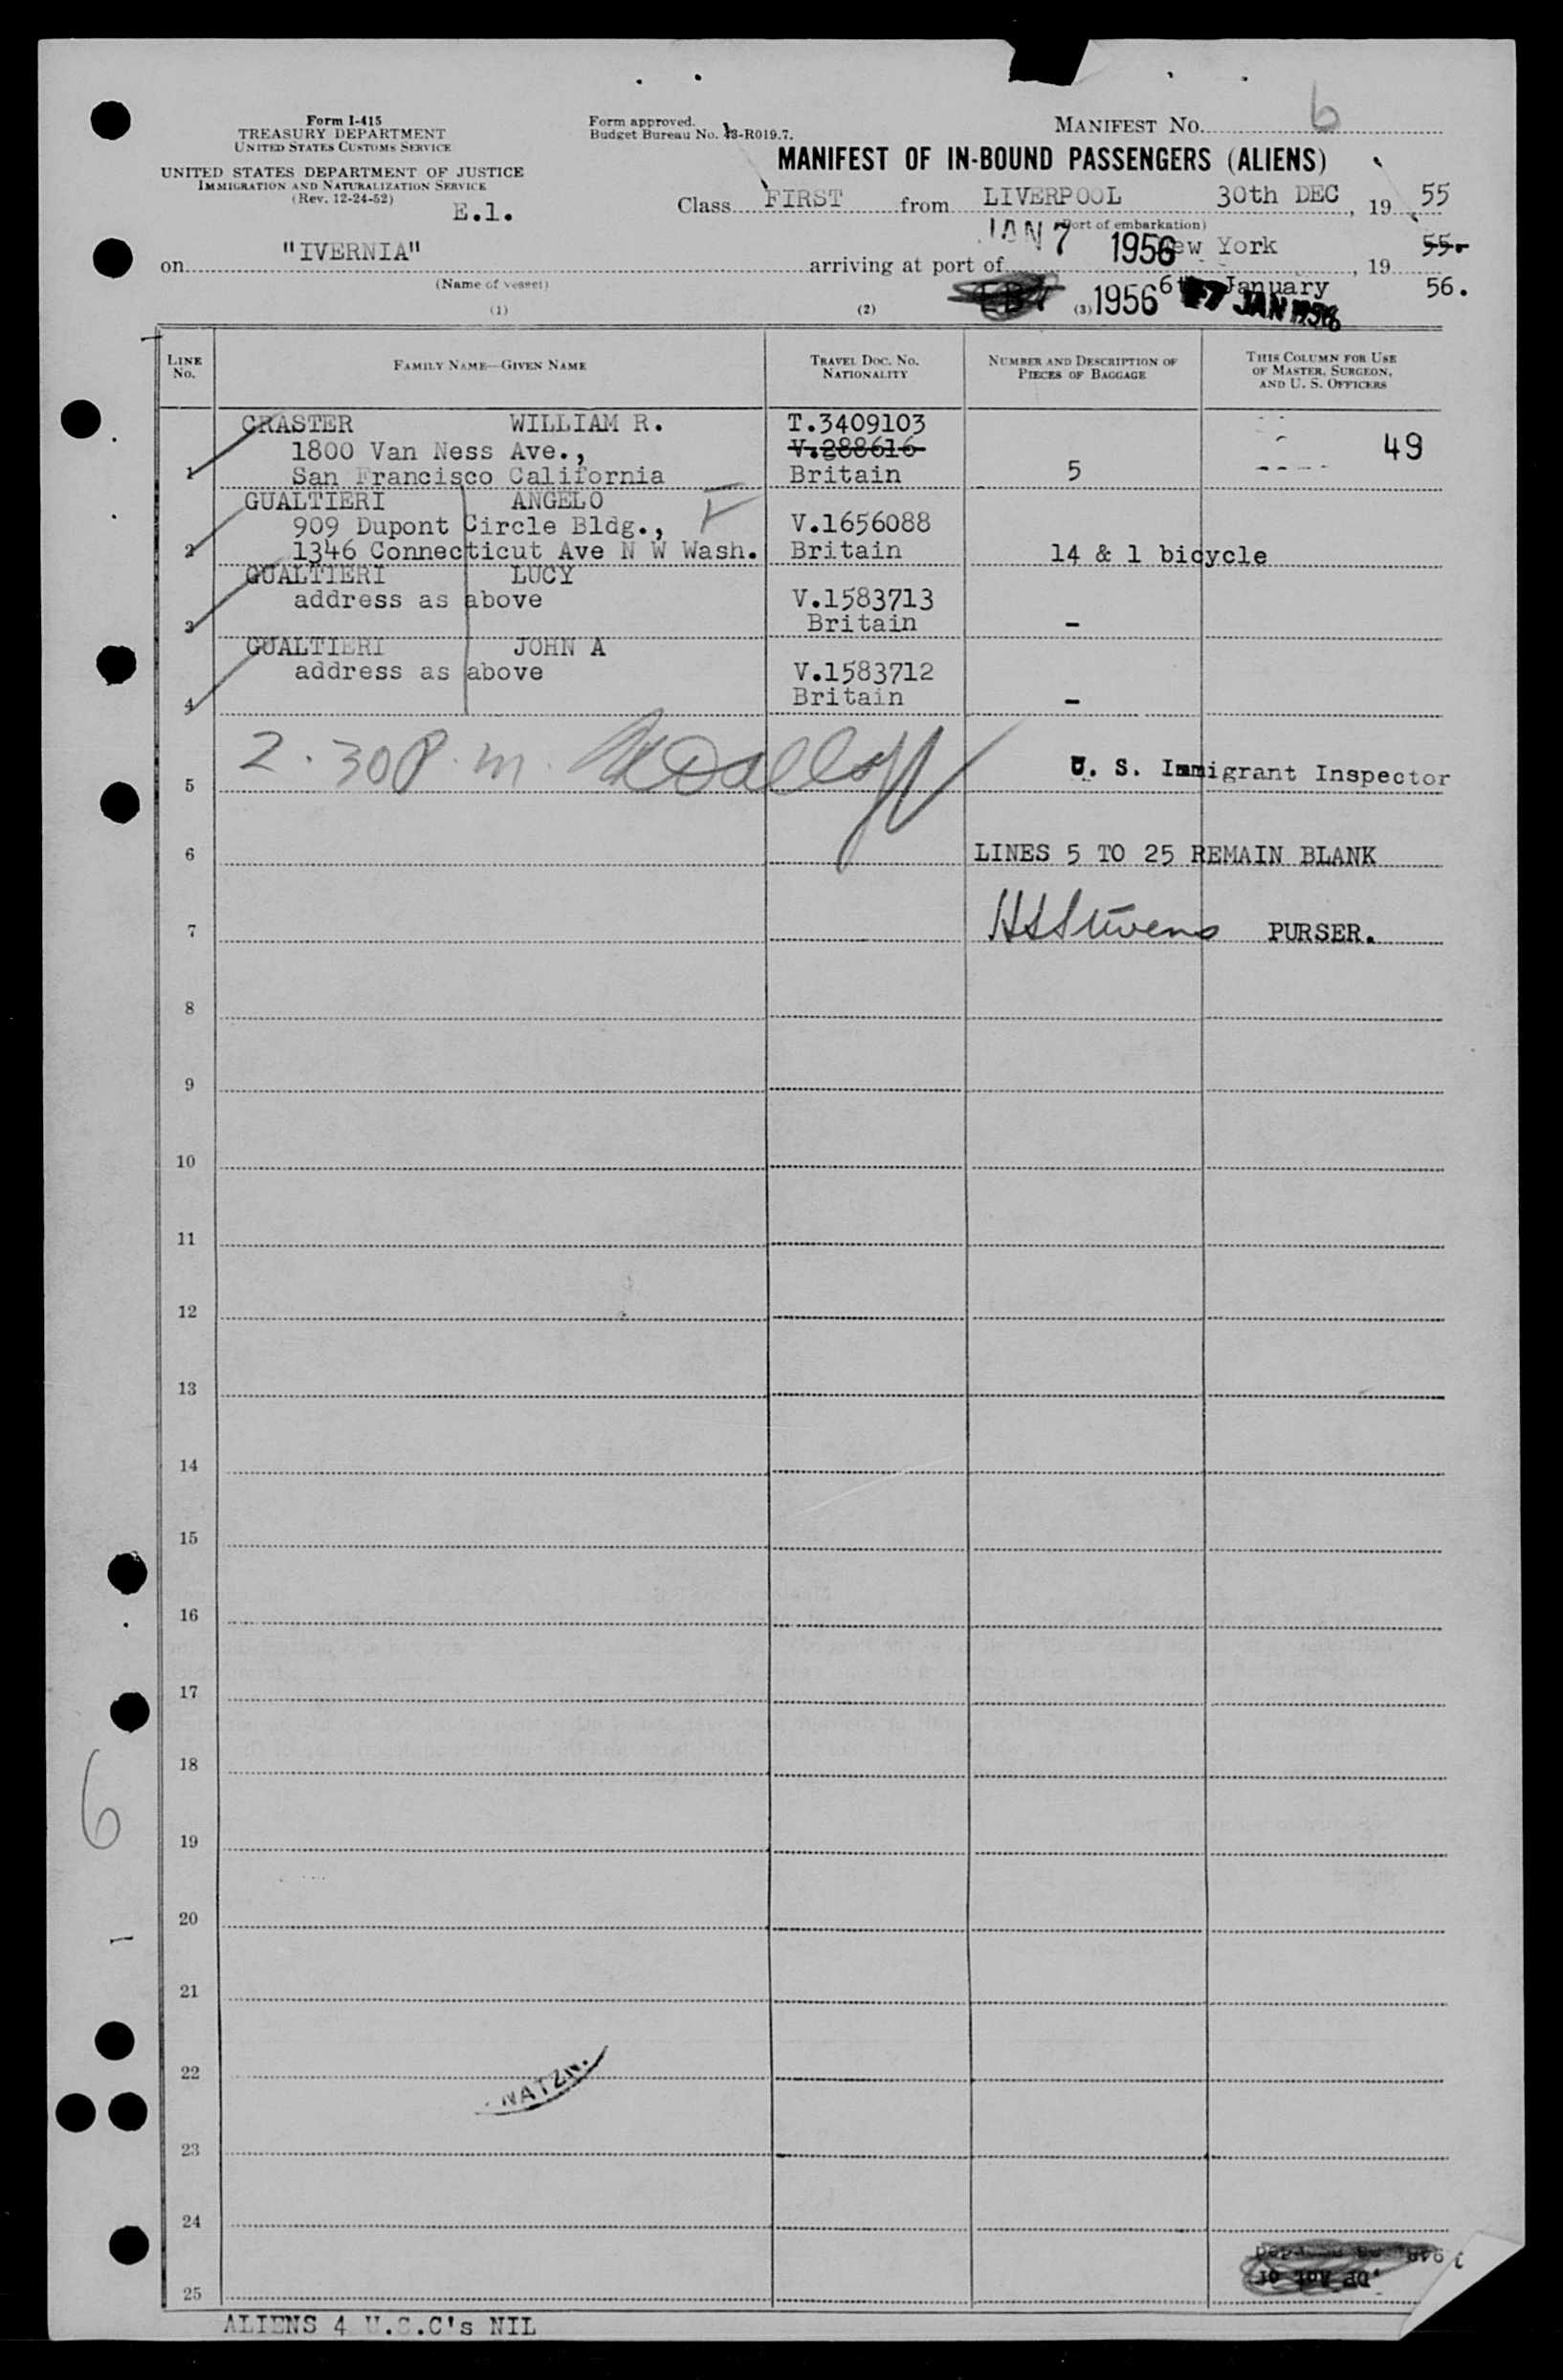 Form I-415
TREASURY DEPARTMENT
UNITED STATES CUSTOMS SERVICE
UNITED STATES DEPARTMENT OF JUSTICE
IMMIGRATION AND NATURALIZATION SERVICE
(Rev. 12-24-52)
E.1.
Form approved.
Budget Bureau No. 43-R019.7.
MANIFEST NO. 6
MANIFEST OF IN-BOUND PASSENGERS (ALIENS)
Class FIRST from LIVERPOOL 30th DEC, 19 55
(Port of embarkation)
JAN 7 1956
on "IVERNIA" arriving at port of New York, 19 55.
(Name of vessel)
1956 6th January 56.
7 JAN 1956
(1) (2) (3)
LINE No. FAMILY NAME—GIVEN NAME TRAVEL DOC. NO. NATIONALITY NUMBER AND DESCRIPTION OF PIECES OF BAGGAGE THIS COLUMN FOR USE OF MASTER, SURGEON, AND U. S. OFFICERS
CRASTER WILLIAM R. T.3409103
1800 Van Ness Ave., V.288616 49
1 San Francisco California Britain 5
GUALTIERI ANGELO
909 Dupont Circle Bldg., V.1656088
2 1346 Connecticut Ave N W Wash. Britain 14 & 1 bicycle
GUALTIERI LUCY
address as above V.1583713
3 Britain -
GUALTIERI JOHN A
address as above V.1583712
4 Britain -
2.30 P.m.
5 U. S. Immigrant Inspector
6 LINES 5 TO 25 REMAIN BLANK
7 HS Stevens PURSER.
8
9
10
11
12
13
14
15
16
17
18
6
19
20
21
22
NATZN.
23
24
25
ALIENS 4 U.S.C's NIL